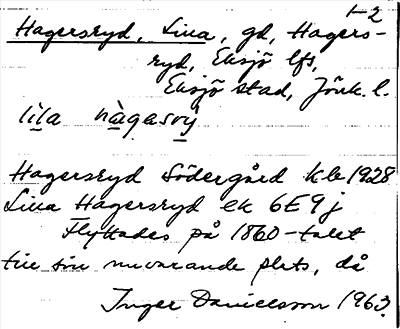 1-2
Hagersryd, Lilla, gd, Hagers-
ryd, Eksjö lfs,
Eksjö stad, Jönk. l.
lila hàgasoy
Hagersryd Södergård kbr 1928
Lilla Hagersryd ek 6E9j
Flyttades på 1860-talet
till sin nuvarande plats, då
Inger Danielsson 1963.